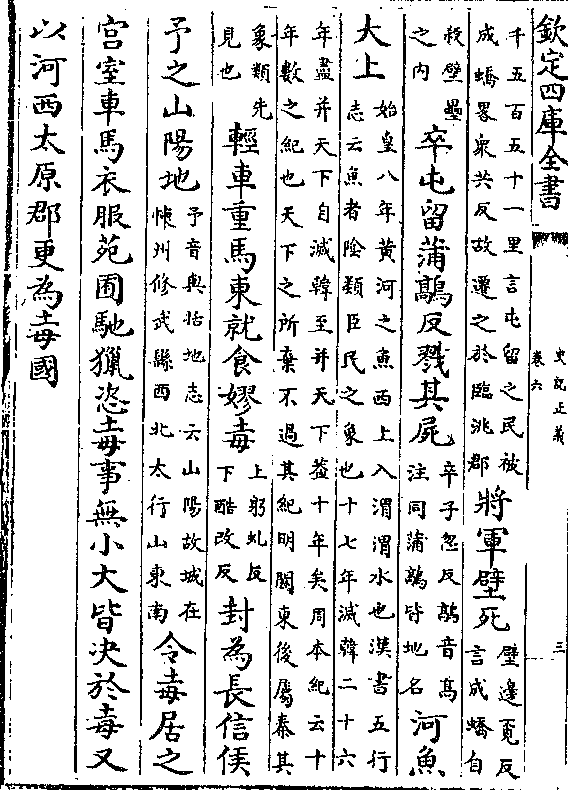 欽定四庫全書
史記正義
卷六
三
千五百五十一里言屯留之民被
成蟜畧衆共反故遷之於臨洮郡
將軍壁死
壁邊覓反
言成蟜自
殺壁壘
之内
卒屯留蒲鶮反戮其屍
卒子忽反鶮音髙
注同蒲鶮皆地名
河魚
大上
始皇八年黄河之魚西上入渭渭水也漢書五行
志云魚者隂類臣民之象也十七年滅韓二十六
年盡并天下自滅韓至并天下葢十年矣周本紀云十
年數之紀也天下之所棄不過其紀明闗東後屬秦其
象類先
見也
輕車重馬東就食嫪毐
上躬虬反
下酷改反
封為長信侯
予之山陽地
予音與括地志云山陽故城在
懐州修武縣西北太行山東南
令毐居之
宫室車馬衣服苑囿馳獵恣毐事無小大皆决於毐又
以河西太原郡更為毐國